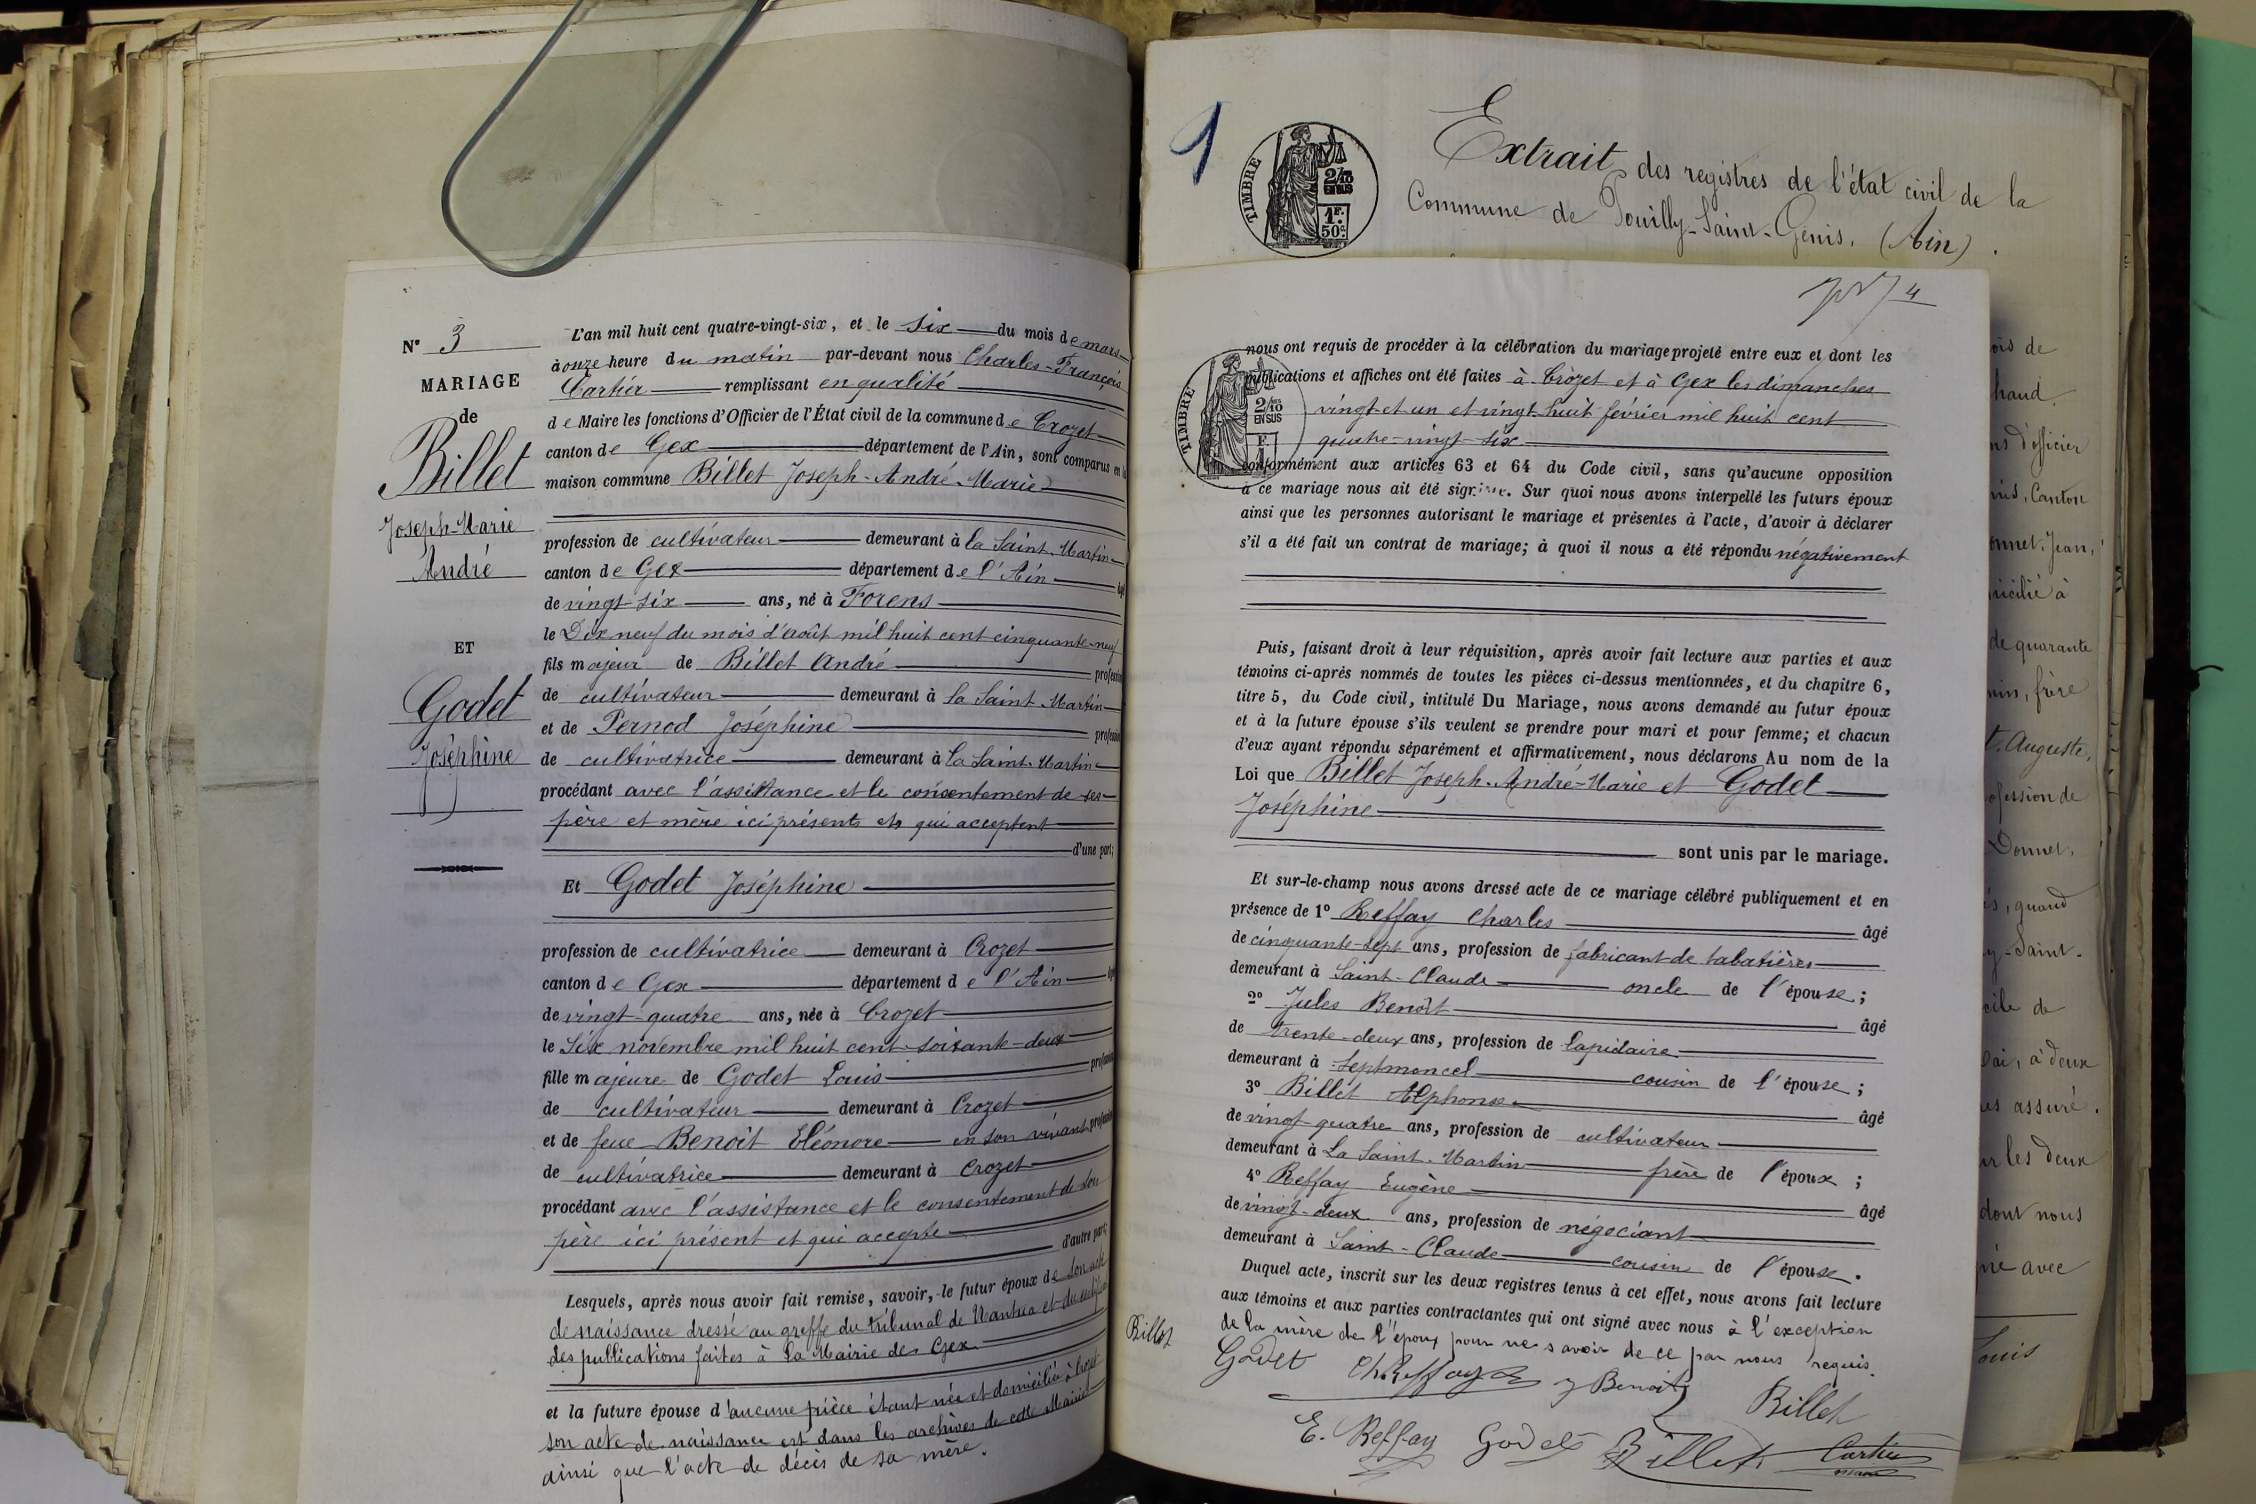 N° 3
MARIAGE
de
Billet
Joseph-Marie
André
ET
Godet
Joséphine
L'an mil huit cent quatre-vingt-six, et le six du mois de mars
à onze heure du matin par-devant nous Charles-François
Cartier remplissant en qualité
de Maire les fonctions d'Officier de l'État civil de la commune de Crozet
canton de Gex département de l'Ain, sont comparus en la
maison commune Billet Joseph-André-Marie
profession de cultivateur demeurant à La Saint-Martin
canton de Gex département de l'Ain âgé
de vingt-six ans, né à Forens
le Dix neuf du mois d'août mil huit cent cinquante-neuf
fils majeur de Billet André profession
de cultivateur demeurant à La Saint-Martin
et de Pernod Joséphine profession
de cultivatrice demeurant à La Saint-Martin
procédant avec l'assistance et le consentement de ses
père et mère ici présents et qui acceptent
d'une part;
Et Godet Joséphine
profession de cultivatrice demeurant à Crozet
canton de Gex département de l'Ain âgé
de vingt-quatre ans, née à Crozet
le Six novembre mil huit cent soixante-deux
fille majeure de Godet Louis profession
de cultivateur demeurant à Crozet
et de feue Benoit Eléonore en son vivant profession
de cultivatrice demeurant à Crozet
procédant avec l'assistance et le consentement de son
père ici présent et qui accepte
d'autre part;
Lesquels, après nous avoir fait remise, savoir, le futur époux de son acte
de naissance dressé au greffe du tribunal de Nantua et du certificat
des publications faites à la Mairie de Gex
et la future épouse d'aucune pièce étant née et domiciliée à Crozet
son acte de naissance est dans les archives de cette Mairie
ainsi que l'acte de décès de sa mère.
1
TIMBRE
2/10
EN SUS
1F.
50c.
Extrait des registres de l'état civil de la
Commune de Pouilly-Saint-Genis, (Ain).
4
TIMBRE
2/10
EN SUS
nous ont requis de procéder à la célébration du mariage projeté entre eux et dont les
publications et affiches ont été faites à Crozet et à Gex les dimanches
vingt et un et vingt-huit février mil huit cent
quatre-vingt-six
conformément aux articles 63 et 64 du Code civil, sans qu'aucune opposition
à ce mariage nous ait été signifiée. Sur quoi nous avons interpellé les futurs époux
ainsi que les personnes autorisant le mariage et présentes à l'acte, d'avoir à déclarer
s'il a été fait un contrat de mariage; à quoi il nous a été répondu négativement
Puis, faisant droit à leur réquisition, après avoir fait lecture aux parties et aux
témoins ci-après nommés de toutes les pièces ci-dessus mentionnées, et du chapitre 6,
titre 5, du Code civil, intitulé Du Mariage, nous avons demandé au futur époux
et à la future épouse s'ils veulent se prendre pour mari et pour femme; et chacun
d'eux ayant répondu séparément et affirmativement, nous déclarons Au nom de la
Loi que Billet Joseph-André-Marie et Godet
Joséphine
sont unis par le mariage.
Et sur-le-champ nous avons dressé acte de ce mariage célébré publiquement et en
présence de 1° Reffay Charles âgé
de cinquante-sept ans, profession de fabricant de tabatières
demeurant à Saint-Claude oncle de l'épouse;
2° Jules Benoît âgé
de trente-deux ans, profession de lapidaire
demeurant à Septmoncel cousin de l'épouse;
3° Billet Alphonse âgé
de vingt-quatre ans, profession de cultivateur
demeurant à La Saint-Martin frère de l'époux;
4° Reffay Eugène âgé
de vingt-deux ans, profession de négociant
demeurant à Saint-Claude cousin de l'épouse.
Duquel acte, inscrit sur les deux registres tenus à cet effet, nous avons fait lecture
aux témoins et aux parties contractantes qui ont signé avec nous à l'exception
de la mère de l'époux pour ne savoir de ce par nous requis.
Billet
Godet Ch. Reffay J Benoit Billet
E. Reffay Godet Billet Cartier
maire
ois de
d'officier
Canton
Jean,
à
de quarante
frère
Auguste,
profession de
Donnet,
quand
Saint-
de
à deux
assuré.
les deux
dont nous
avec
Louis